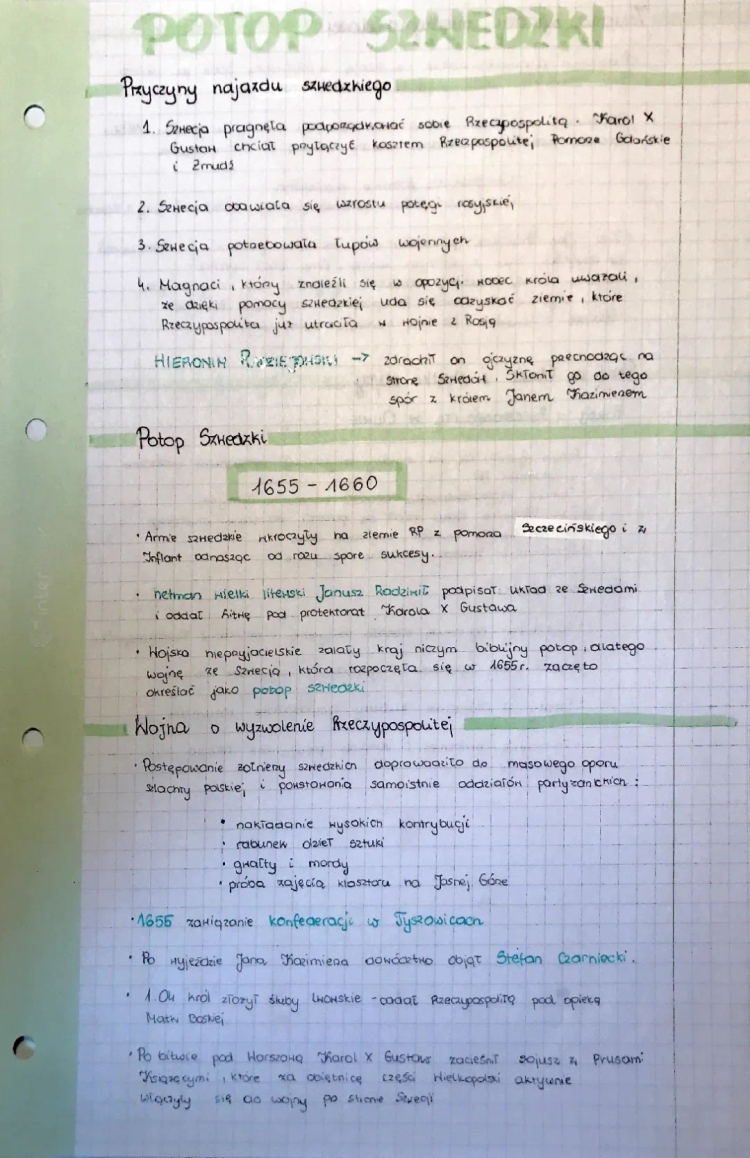 POTOP SZWEDZKI
Przyczyny najazdu szwedzkiego
1. Szwecja pragnęła podporządkować sobie Rzeczpospolitą. Karol X
Gustaw chciał przyłączyć kosztem Rzeczpospolitej Pomorze Gdańskie
i Żmudź
2. Szwecja obawiała się wzrostu potęgi rosyjskiej
3. Szwecja potrzebowała łupów wojennych
4. Magnaci, którzy znaleźli się w opozycji wobec króla uważali,
że dzięki pomocy szwedzkiej uda się odzyskać ziemie, które
Rzeczypospolita już utraciła w wojnie z Rosją
HIERONIM RADZIEJOWSKI → zdradził on ojczyznę przechodząc na
stronę Szwedów. Skłonił go do tego
spór z królem Janem Kazimierzem
Potop Szwedzki
1655 - 1660
• Armie szwedzkie wkroczyły na ziemie RP z pomorza Szczecińskiego i z
Inflant odnosząc od razu spore sukcesy.
• hetman wielki litewski Janusz Radziwił podpisał układ ze Szwedami
i oddał Litwę pod protektorat Karola X Gustawa
• Wojska nieprzyjacielskie zalały kraj niczym biblijny potop, dlatego
wojnę ze Szwecją, która rozpoczęła się w 1655r. zaczęto
określać jako potop szwedzki
Wojna o wyzwolenie Rzeczypospolitej
• Postępowanie żołnierzy szwedzkich doprowadziło do masowego oporu
szlachty polskiej i powstawania samoistnie oddziałów partyzanckich:
• nakładanie wysokich kontrybucji
• rabunek dzieł sztuki
• gwałty i mordy
• próba zajęcia klasztoru na Jasnej Górze
• 1655 zawiązanie konfederacji w Tyszowicach
• Po wyjeździe Jana Kazimierza dowództwo objął Stefan Czarniecki.
• 1.04 król złożył śluby lwowskie - oddał Rzeczypospolitą pod opieką
Matki Boskiej
• Po bitwie pod Warszawą Karol X Gustaw zacieśnił sojusz z Prusami
Książęcymi, które za obietnicę części Wielkopolski aktywnie
włączyły się do wojny po stronie Szwecji